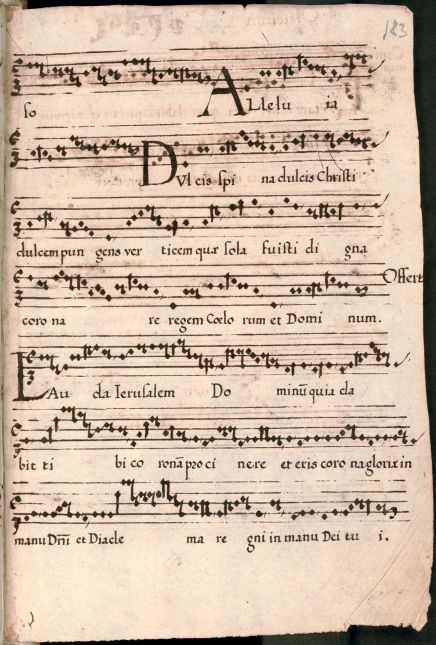 183
so ALlelu ia
DUl cis spi na dulcis Christi
dulcem pun gens ver ticem quæ sola fuisti di gna
Offert
coro na re regem Cœlo rum et Domi num.
LAu da Ierusalem Do minũ quia da
bit ti bi co ronã pro ci nere et eris coro na gloriæ in
manu Dñi et Diade ma re gni in manu Dei tu i.